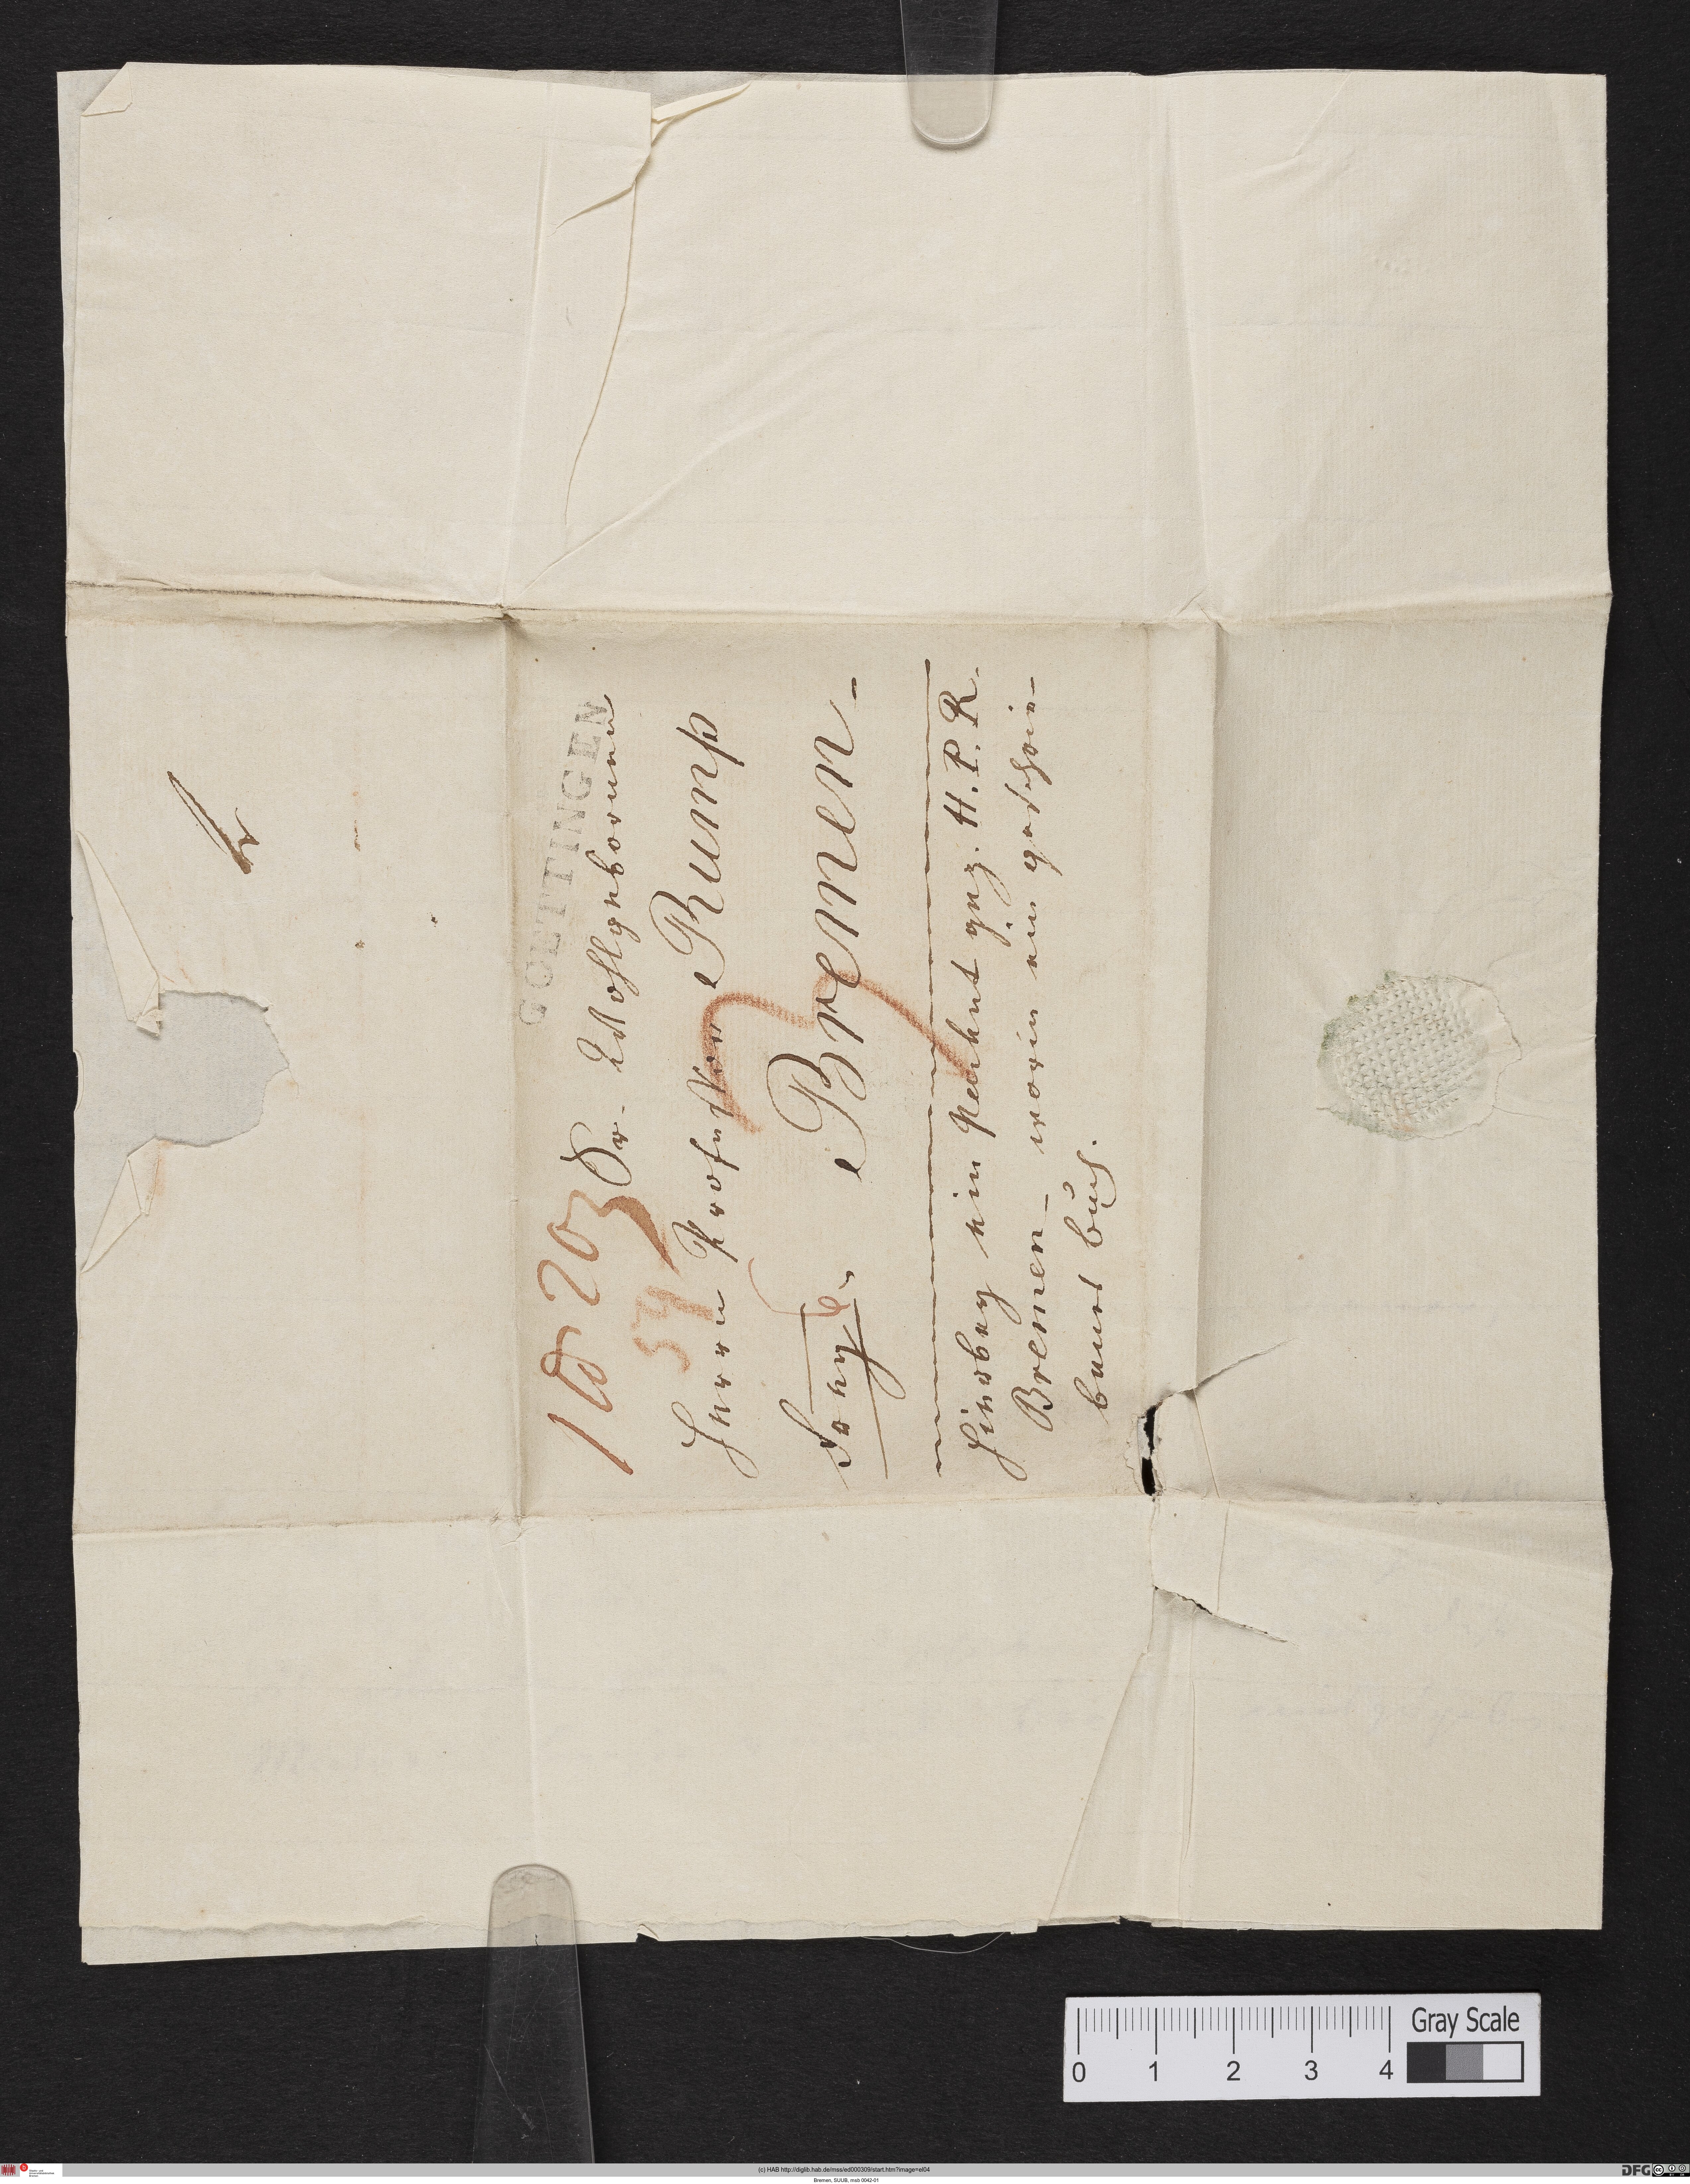 GOETTINGEN
1 ℔ 20
Sr. Wohlgebornen
54
Herrn Professor Rump
franco Bremen.
Hierbey ein packet gez. H. P. R.
Bremen worin ein geschrie-
benes buch.
0 1 2 3 4
Gray Scale
(c) HAB http://diglib.hab.de/mss/ed000309/start.htm?image=el04
Bremen, SUUB, msb 0042-01
DFG